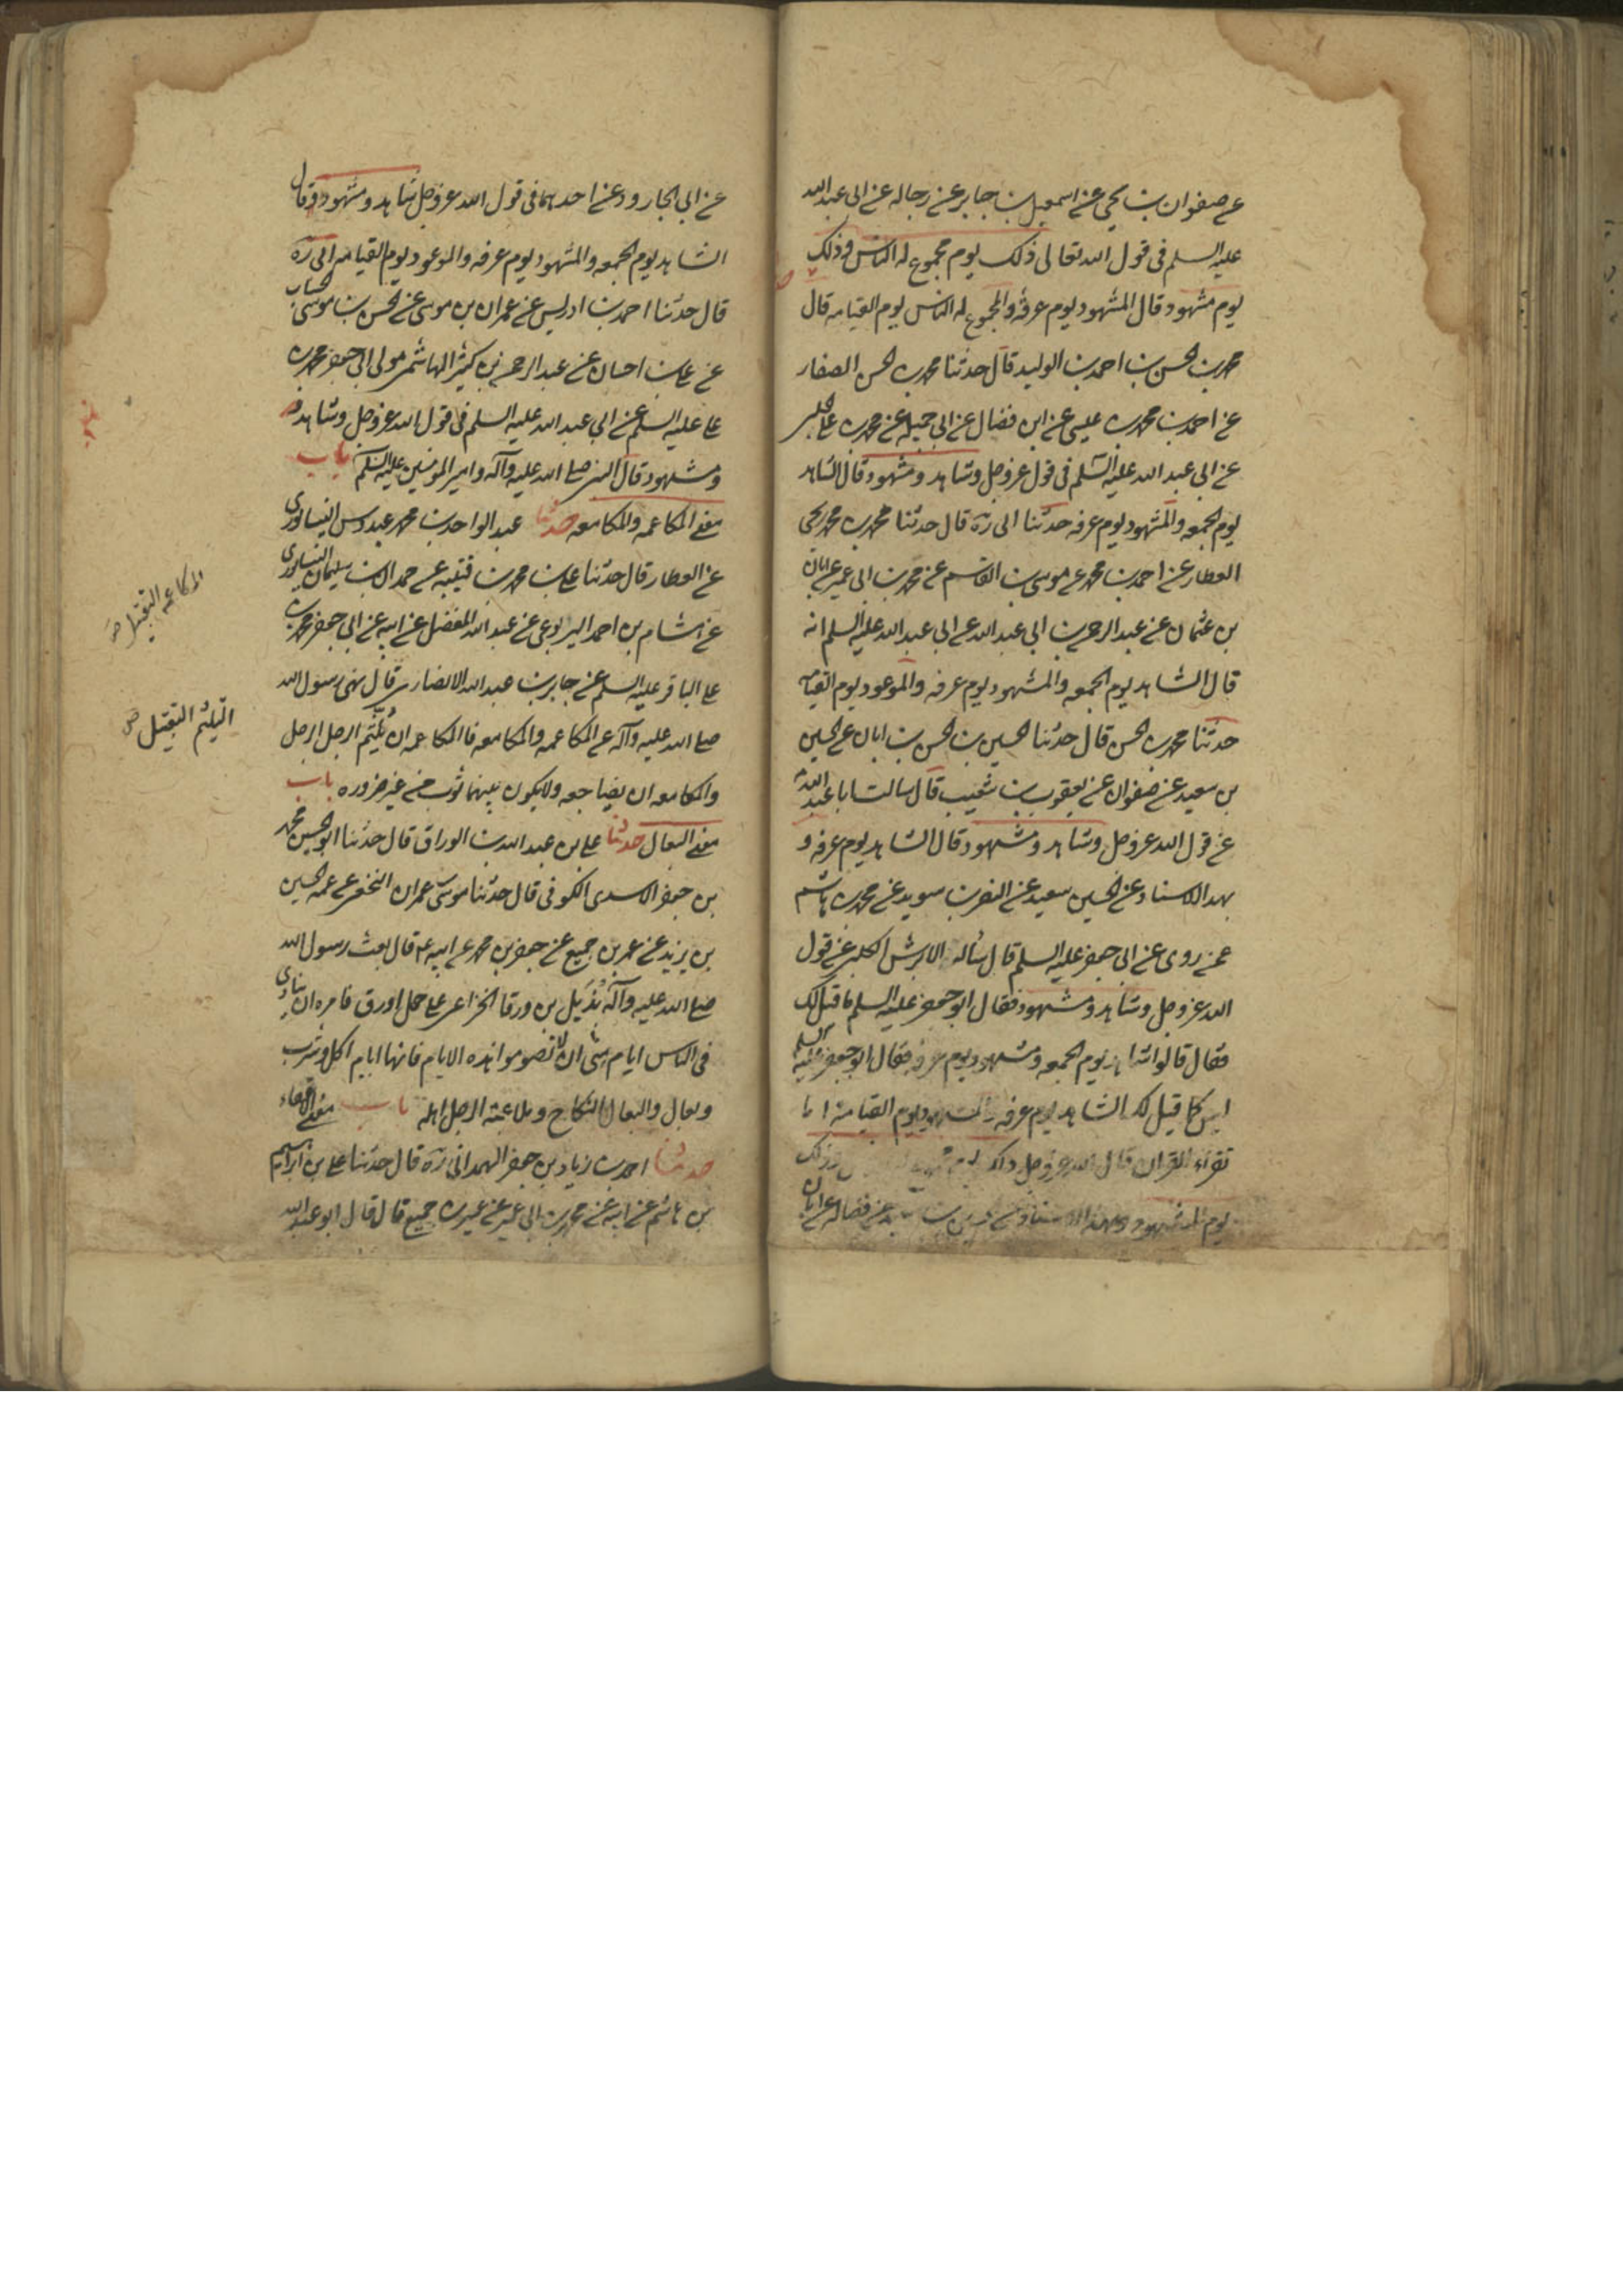 عن صفوان بن يحيى عن اسمعيل بن جابر عن رجاله عن ابى عبد الله
عليه السلم فى قول الله تعالى ذلك يوم مجموع له الناس وذلك
يوم مشهود قال المشهود يوم عرفة والمجموع له الناس يوم القيامه قال
محمد بن الحسن بن احمد بن الوليد قال حدثنا محمد بن الحسن الصفار
عن احمد بن محمد بن عيسى عن ابن فضال عن ابى جميله عن محمد بن على الحلبى
عن ابى عبد الله عليه السلم فى قول عز وجل وشاهد ومشهود قال الشاهد
يوم الجمعه والمشهود يوم عرفه حدثنا ابى ره قال حدثنا محمد بن محمد يحيى
العطار عن احمد بن محمد عن موسى بن القاسم عن محمد بن ابى عمير عن ابان
بن عثمان عن عبد الرحمن بن ابى عبد الله عن ابى عبد الله عليه السلم انه
قال الشاهد يوم الجمعه والمشهود يوم عرفه والموعود يوم القيامه
حدثنا محمد بن الحسن قال حدثنا الحسين بن الحسن بن ابان عن الحسين
بن سعيد عن صفوان عن يعقوب بن شعيب قال سالت ابا عبد الله
عن قول الله عز وجل وشاهد ومشهود قال الشاهد يوم عرفه و
بهذا الاسناد عن الحسين سعيد عن النضر بن سويد عن محمد بن هاشم
عمن روى عن ابى جعفر عليه السلم قال سأله الابرش الكلبى عن قول
الله عز وجل وشاهد ومشهود فقال ابو جعفر عليه السلم ما قيل لك
فقال قالوا شاهد يوم الجمعه ومشهود يوم عرفه فقال ابو جعفر عليه السلم
ليس كما قيل لك الشاهد يوم عرفه والمشهود يوم القيامة اما
تقراء القران قال الله عز وجل ذلك يوم وذلك
يوم المشهود وبهذا الاسناد عن الحسين بن سعيد عن فضاله عن ابان
عن ابى الجارود عن احدهما فى قول الله عز وجل شاهد ومشهود وقال
الشاهد يوم الجمعه والمشهود يوم عرفه والموعود يوم القيامه ابى ره
قال حدثنا احمد بن ادريس عن عمران بن موسى عن الحسن بن موسى الخشاب
عن على بن احسان عن عبد الرحمن بن كثير الهاشمى مولى ابى جعفر محمد بن
على عليه السلم عن ابى عبد الله عليه السلم فى قول الله عز وجل وشاهد
ومشهود قال النبى صلى الله عليه وآله وامير المومنين عليه السلم باب
معنى المكاعمه والمكامعه حدثنا عبد الواحد بن محمد عبدوس النيسابورى
عن العطار قال حدثنا على بن محمد بن قتيبه عن حمدان بن سليمان النيسابورى
عن هشام بن احمد اليربوعى عن عبد الله المفضل عن ابيه عن ابى جعفر محمد بن
على الباقر عليه السلم عن جابر بن عبد الله الانصارى قال نهى رسول الله
صلى الله عليه وآله عن المكاعمه والمكامعه فالمكاعمه ان يلثم الرجل الرجل
والمكامعه ان يضاجعه ولا يكون بينهما ثوب من غير ضروره باب
معنى البعال حدثنا على بن عبد الله بن الوراق قال حدثنا ابو الحسين محمد
بن جعفر الاسدى الكوفى قال حدثنا موسى عمران النخعى عن عمه الحسين
بن يزيد عن عمر بن جميع عن جعفر بن محمد عن ابيه ع قال بعث رسول الله
صلى الله عليه وآله بُدَيل بن ورقا الخزاعى على جمل اورق فامره ان ينادى
فى الناس ايام منى ان لا تصوموا هذه الايام فانها ايام اكل وشرب
وبعال والبعال النكاح وملاعبة الرجل اهله باب معنى الاقعاء
حدثنا احمد بن زياد بن جعفر الهمدانى ره قال حدثنا على بن ابراهيم
بن هاشم عن ابيه عن محمد بن ابى عمير عن عمرو بن جميع قال قال ابو عبد الله
المكاعمه التقبيل
التلثيم التقبيل